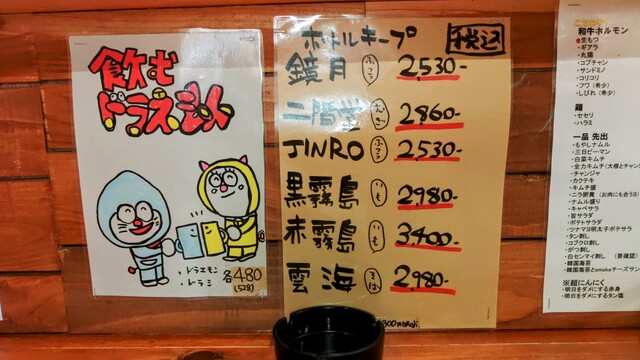 飲む
ドラえもん
・ドラエモン
・ドラミ
各480
(528)
ボトルキープ
税込
鏡月 ふつう 2530-
二階堂 むぎ 2860-
JINRO ふつう 2530-
黒霧島 いも 2980-
赤霧島 いも 3,400-
雲海 そば 2,980-
和牛ホルモン
・生もつ
・ギアラ
・丸腸
・コプチャン
・サンドミノ
・コリコリ
・フワ(希少)
・しびれ(希少)
鶏
・セセリ
・ハラミ
一品 先出
・もやしナムル
・三日ピーマン
・白菜キムチ
・全力キムチ(大根とチャン
・チャンジャ
・カクテキ
・キムチ盛り
・ニラ卵黄(お肉にも合うヨ
・ナムル盛り
・キャベサラ
・旨サラダ
・ポテトサラダ
・ツナマヨ明太子ポテサラ
・タン刺し
・コブクロ刺し
・がつ刺し
・白センマイ刺し (要確認)
・韓国海苔
・韓国海苔とsmokeチーズサン
※超にんにく
・明日をダメにする赤身
・明日をダメにするタン塩